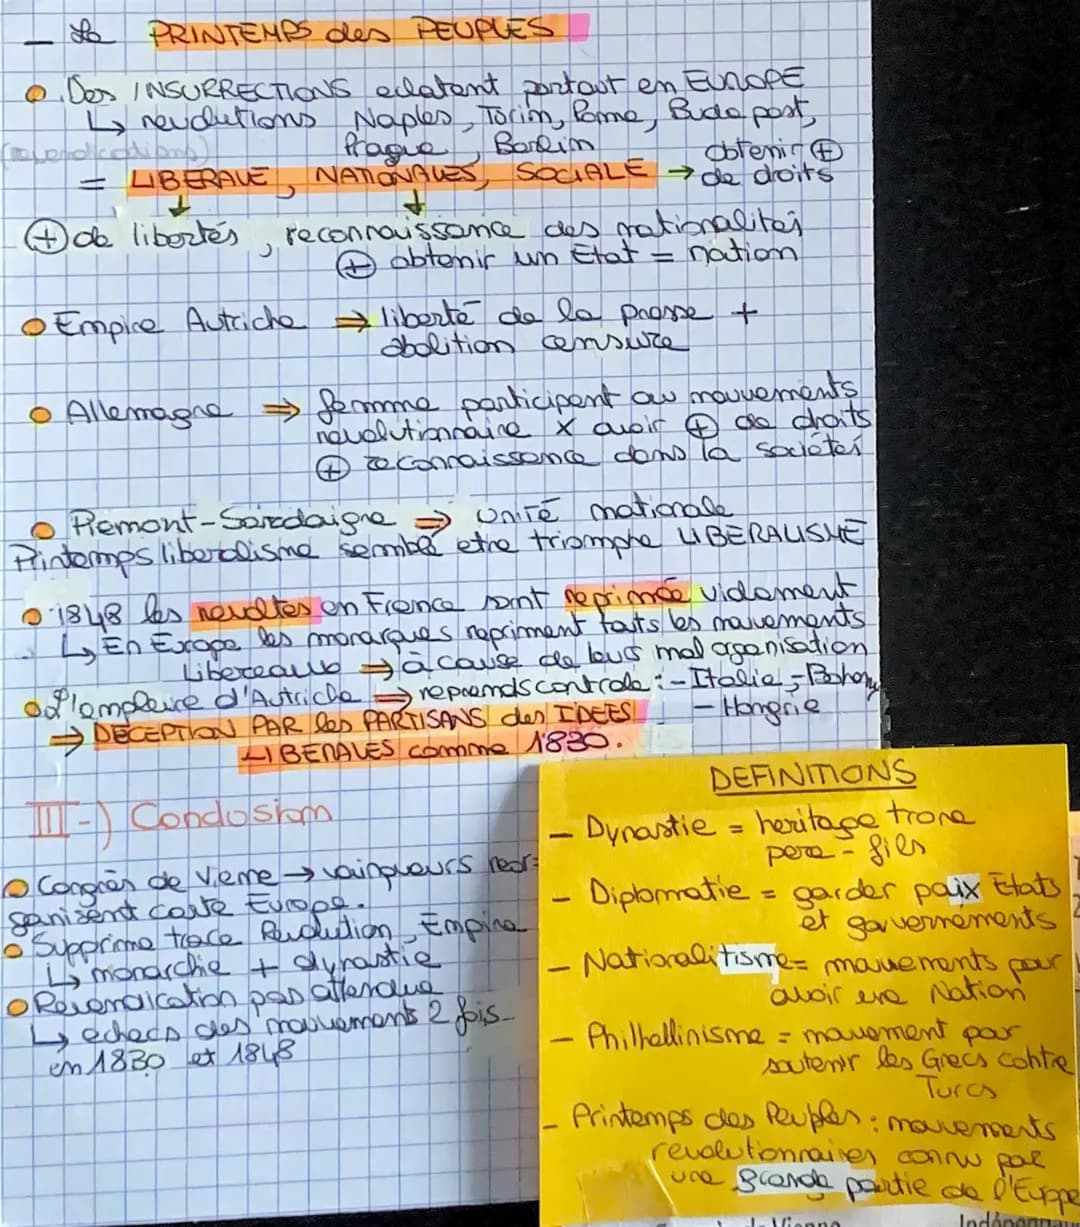 - Le PRINTEMPS des PEUPLES
. Des INSURRECTIONS eclatent partout en EUROPE
↳ revolutions Naples, Torin, Rome, Budapest,
(revendications) Prague, Berlin
= LIBERALE, NATIONALES, SOCIALE → obtenir ⊕ de droits
⊕ de libertés, reconnaissance des nationalités
⊕ obtenir un État = nation
Empire Autriche ⇒ liberté de la presse +
abolition censure
Allemagne ⇒ femme participent au mouvements
revolutionnaire x avoir ⊕ de droits
⊕ reconnaissance dans la sociétés
Piemont-Sardaigne ⇒ unité nationale
Printemps liberalisme semble etre triomphe LIBERALISME
1848 les revoltes en France sont reprimée vidament
↳ En Europe les monarques repriment touts les mouvements
Libereaux ⇒ à cause de leurs mal organisation
L'empleire d'Autriche ⇒ reprends controle : - Italie, - Bohem
- Hongrie
→ DECEPTION PAR les PARTISANS des IDEES
LIBERALES comme 1830.
III-) Conclosion
Congrès de Viene → vainqueurs reor-
ganisent carte Europe.
Supprime trace Revolution, Empire
↳ monarchie + dynastie
Revendication pas attendue
↳ echecs des mouvements 2 fois
en 1830 et 1848
DEFINITIONS
- Dynastie = heritage trone
pere - fils
- Diplomatie = garder paix États
et gouvernements
- Nationalitisme = mouvements pour
avoir une Nation
- Philhellinisme = mouvement pour
soutenir les Grecs contre
Turcs
- Printemps des Peuples : mouvements
revolutionnaires connu par
une grande partie de l'Europe